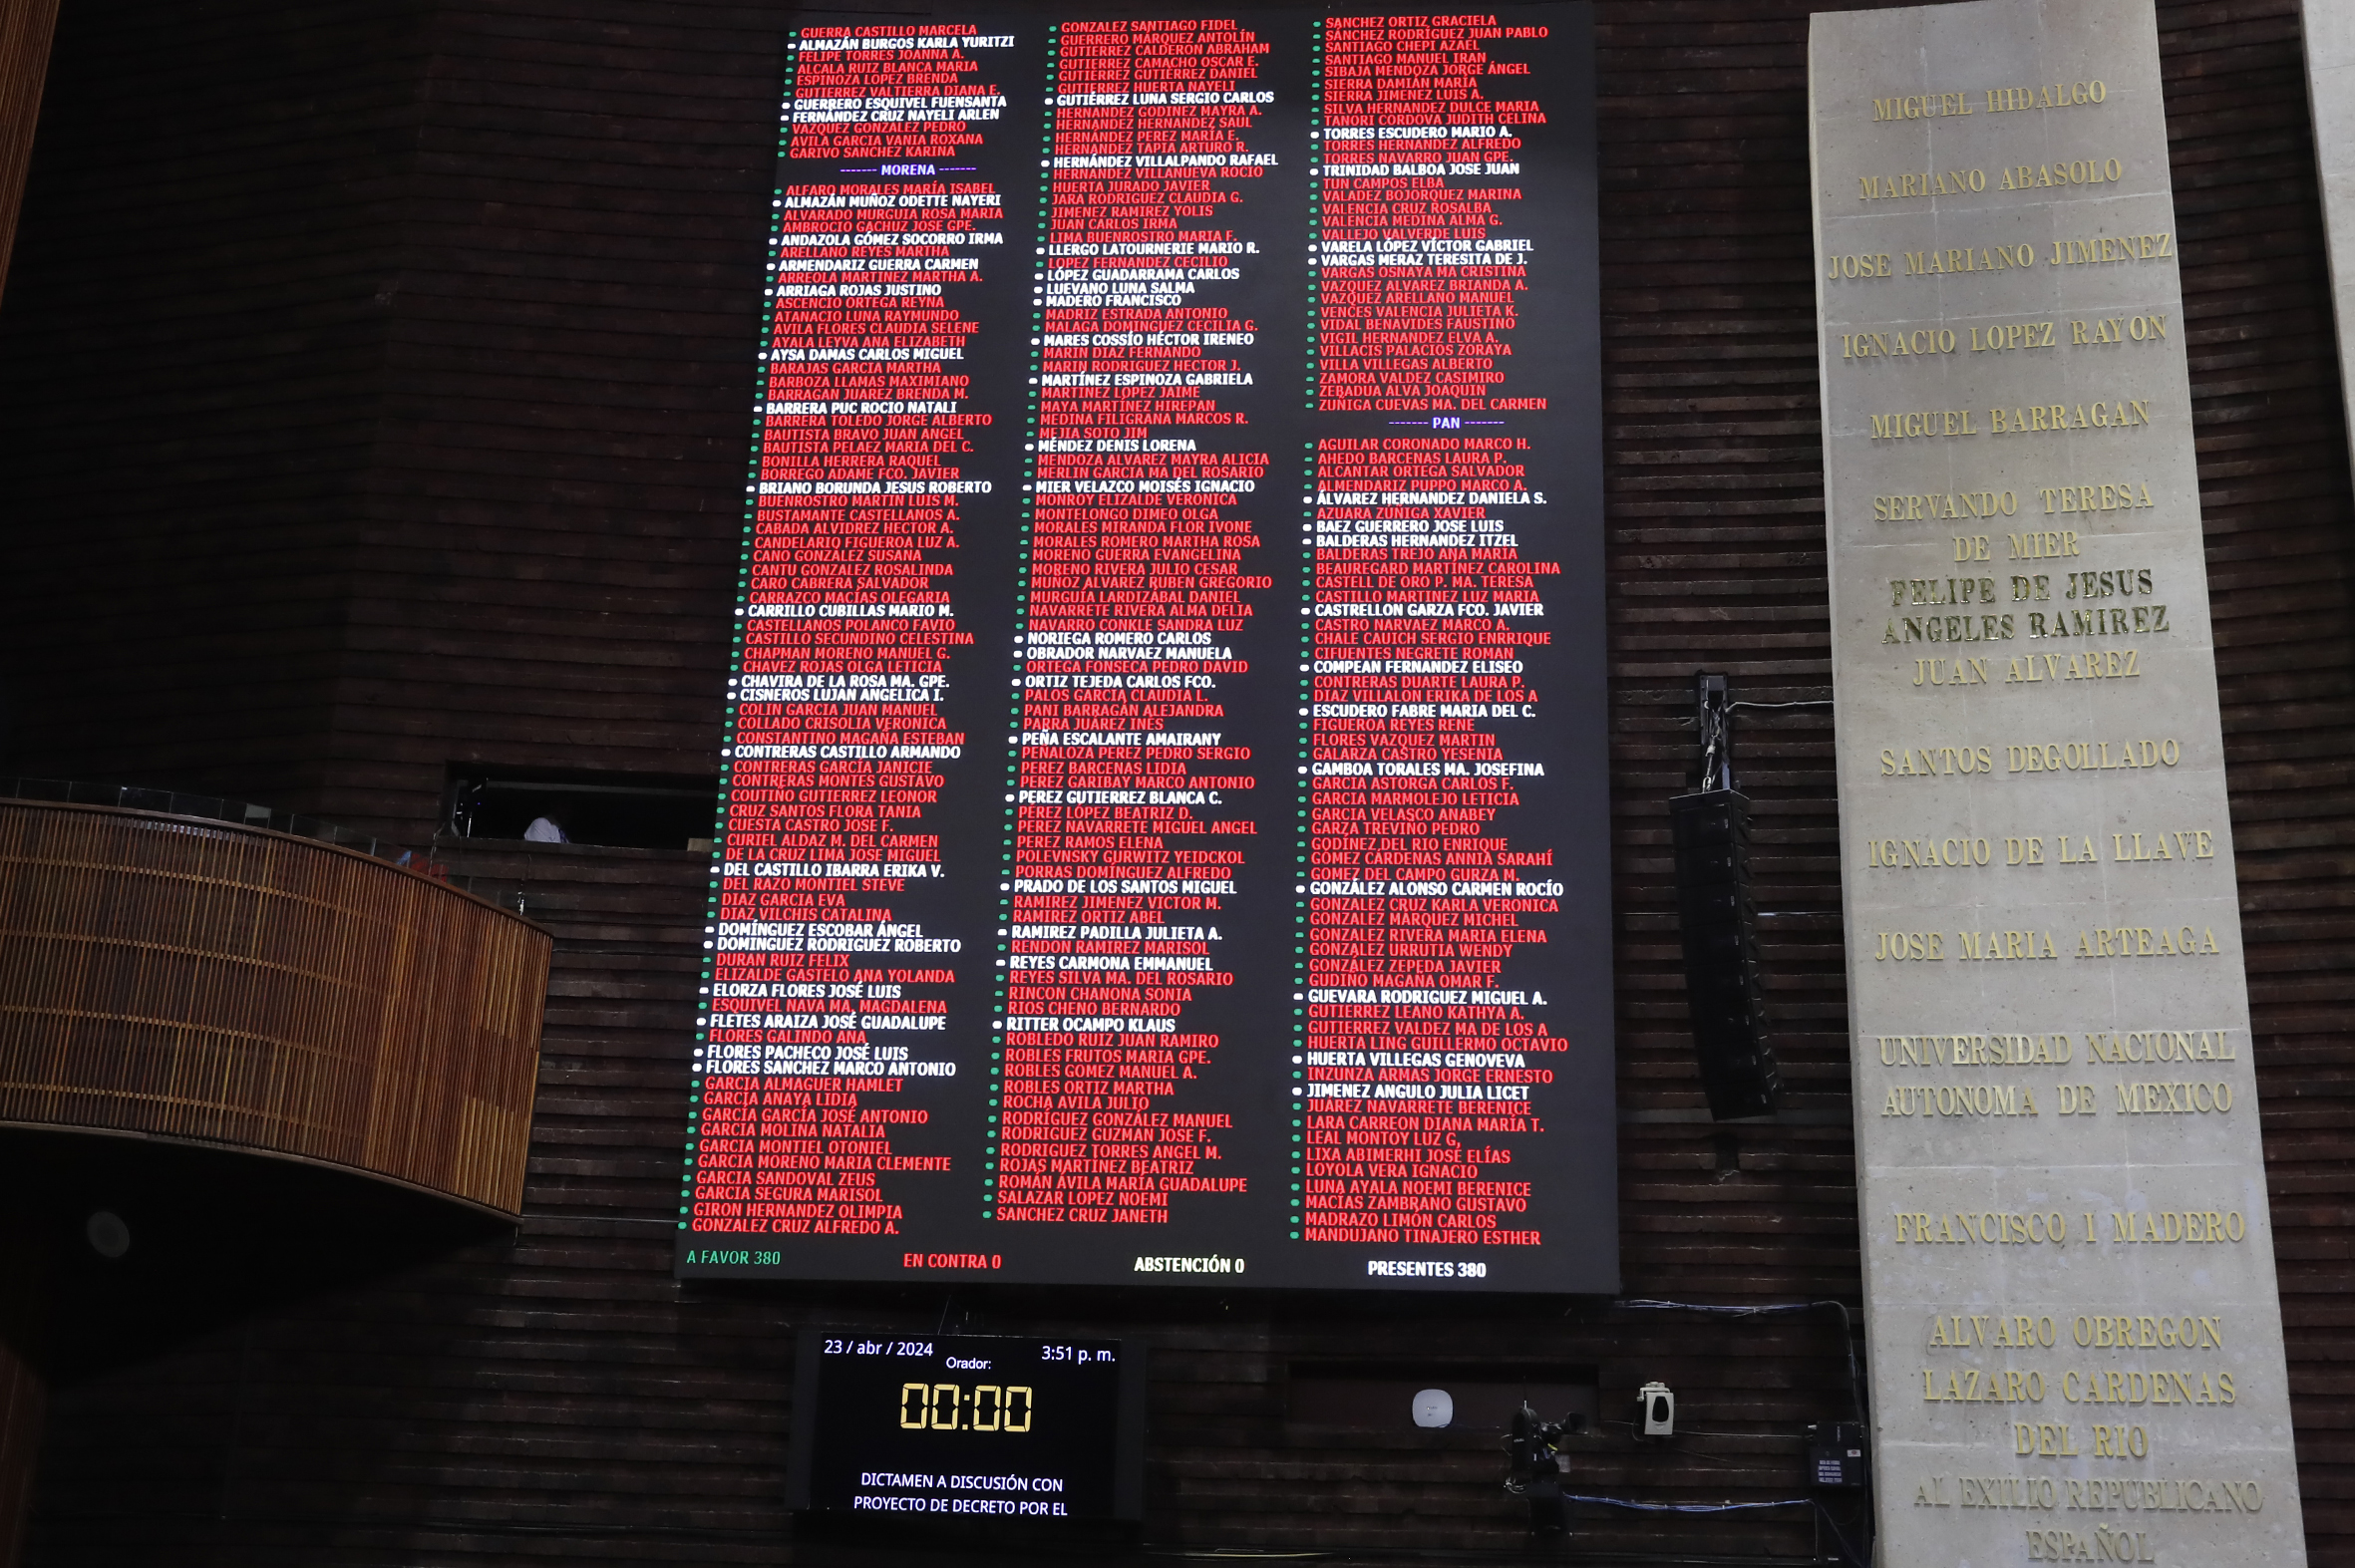 GUERRA CASTILLO MARCELA
ALMAZÁN BURGOS KARLA YURITZI
FELIPE TORRES JOANNA A.
ALCALA RUIZ BLANCA MARIA
ESPINOZA LOPEZ BRENDA
GUTIERREZ VALTIERRA DIANA E.
GUERRERO ESQUIVEL FUENSANTA
FERNÁNDEZ CRUZ NAYELI ARLEN
VAZQUEZ GONZALEZ PEDRO
AVILA GARCIA VANIA ROXANA
GARIVO SANCHEZ KARINA
------- MORENA -------
ALFARO MORALES MARÍA ISABEL
ALMAZÁN MUÑOZ ODETTE NAYERI
ALVARADO MURGUIA ROSA MARIA
AMBROCIO GACHUZ JOSE GPE.
ANDAZOLA GÓMEZ SOCORRO IRMA
ARELLANO REYES MARTHA
ARMENDARIZ GUERRA CARMEN
ARREOLA MARTINEZ MARTHA A.
ARRIAGA ROJAS JUSTINO
ASCENCIO ORTEGA REYNA
ATANACIO LUNA RAYMUNDO
AVILA FLORES CLAUDIA SELENE
AYALA LEYVA ANA ELIZABETH
AYSA DAMAS CARLOS MIGUEL
BARAJAS GARCIA MARTHA
BARBOZA LLAMAS MAXIMIANO
BARRAGAN JUAREZ BRENDA M.
BARRERA PUC ROCIO NATALI
BARRERA TOLEDO JORGE ALBERTO
BAUTISTA BRAVO JUAN ANGEL
BAUTISTA PELAEZ MARIA DEL C.
BONILLA HERRERA RAQUEL
BORREGO ADAME FCO. JAVIER
BRIANO BORUNDA JESUS ROBERTO
BUENROSTRO MARTIN LUIS M.
BUSTAMANTE CASTELLANOS A.
CABADA ALVIDREZ HECTOR A.
CANDELARIO FIGUEROA LUZ A.
CANO GONZÁLEZ SUSANA
CANTU GONZALEZ ROSALINDA
CARO CABRERA SALVADOR
CARRAZCO MACÍAS OLEGARIA
CARRILLO CUBILLAS MARIO M.
CASTELLANOS POLANCO FAVIO
CASTILLO SECUNDINO CELESTINA
CHAPMAN MORENO MANUEL G.
CHAVEZ ROJAS OLGA LETICIA
CHAVIRA DE LA ROSA MA. GPE.
CISNEROS LUJAN ANGELICA I.
COLIN GARCIA JUAN MANUEL
COLLADO CRISOLIA VERONICA
CONSTANTINO MAGAÑA ESTEBAN
CONTRERAS CASTILLO ARMANDO
CONTRERAS GARCÍA JANICIE
CONTRERAS MONTES GUSTAVO
COUTIÑO GUTIERREZ LEONOR
CRUZ SANTOS FLORA TANIA
CUESTA CASTRO JOSE F.
CURIEL ALDAZ M. DEL CARMEN
DE LA CRUZ LIMA JOSE MIGUEL
DEL CASTILLO IBARRA ERIKA V.
DEL RAZO MONTIEL STEVE
DIAZ GARCIA EVA
DIAZ VILCHIS CATALINA
DOMÍNGUEZ ESCOBAR ÁNGEL
DOMINGUEZ RODRIGUEZ ROBERTO
DURAN RUIZ FELIX
ELIZALDE GASTELO ANA YOLANDA
ELORZA FLORES JOSÉ LUIS
ESQUIVEL NAVA MA. MAGDALENA
FLETES ARAIZA JOSÉ GUADALUPE
FLORES GALINDO ANA
FLORES PACHECO JOSÉ LUIS
FLORES SANCHEZ MARCO ANTONIO
GARCIA ALMAGUER HAMLET
GARCÍA ANAYA LIDIA
GARCÍA GARCÍA JOSÉ ANTONIO
GARCIA MOLINA NATALIA
GARCIA MONTIEL OTONIEL
GARCIA MORENO MARIA CLEMENTE
GARCIA SANDOVAL ZEUS
GARCIA SEGURA MARISOL
GIRON HERNANDEZ OLIMPIA
GONZALEZ CRUZ ALFREDO A.
GONZALEZ SANTIAGO FIDEL
GUERRERO MÁRQUEZ ANTOLÍN
GUTIERREZ CALDERON ABRAHAM
GUTIERREZ CAMACHO OSCAR E.
GUTIERREZ GUTIÉRREZ DANIEL
GUTIERREZ HUERTA NAYELI
GUTIÉRREZ LUNA SERGIO CARLOS
HERNANDEZ GODINEZ MAYRA A.
HERNANDEZ HERNANDEZ SAUL
HERNÁNDEZ PEREZ MARÍA E.
HERNANDEZ TAPIA ARTURO R.
HERNÁNDEZ VILLALPANDO RAFAEL
HERNANDEZ VILLANUEVA ROCIO
HUERTA JURADO JAVIER
JARA RODRIGUEZ CLAUDIA G.
JIMENEZ RAMIREZ YOLIS
JUAN CARLOS IRMA
LIMA BUENROSTRO MARIA F.
LLERGO LATOURNERIE MARIO R.
LOPEZ FERNANDEZ CECILIO
LÓPEZ GUADARRAMA CARLOS
LUEVANO LUNA SALMA
MADERO FRANCISCO
MADRIZ ESTRADA ANTONIO
MALAGA DOMINGUEZ CECILIA G.
MARES COSSÍO HÉCTOR IRENEO
MARIN DIAZ FERNANDO
MARIN RODRIGUEZ HECTOR J.
MARTÍNEZ ESPINOZA GABRIELA
MARTINEZ LÓPEZ JAIME
MAYA MARTÍNEZ HIREPAN
MEDINA FILIGRANA MARCOS R.
MEJIA SOTO JIM
MÉNDEZ DENIS LORENA
MENDOZA ALVAREZ MAYRA ALICIA
MERLIN GARCIA MA DEL ROSARIO
MIER VELAZCO MOISÉS IGNACIO
MONROY ELIZALDE VERONICA
MONTELONGO DIMEO OLGA
MORALES MIRANDA FLOR IVONE
MORALES ROMERO MARTHA ROSA
MORENO GUERRA EVANGELINA
MORENO RIVERA JULIO CESAR
MUÑOZ ALVAREZ RUBEN GREGORIO
MURGUÍA LARDIZÁBAL DANIEL
NAVARRETE RIVERA ALMA DELIA
NAVARRO CONKLE SANDRA LUZ
NORIEGA ROMERO CARLOS
OBRADOR NARVAEZ MANUELA
ORTEGA FONSECA PEDRO DAVID
ORTIZ TEJEDA CARLOS FCO.
PALOS GARCIA CLAUDIA L.
PANI BARRAGÁN ALEJANDRA
PARRA JUÁREZ INÉS
PEÑA ESCALANTE AMAIRANY
PEÑALOZA PEREZ PEDRO SERGIO
PEREZ BARCENAS LIDIA
PEREZ GARIBAY MARCO ANTONIO
PEREZ GUTIERREZ BLANCA C.
PEREZ LÓPEZ BEATRIZ D.
PEREZ NAVARRETE MIGUEL ANGEL
PEREZ RAMOS ELENA
POLEVNSKY GURWITZ YEIDCKOL
PORRAS DOMÍNGUEZ ALFREDO
PRADO DE LOS SANTOS MIGUEL
RAMIREZ JIMENEZ VICTOR M.
RAMIREZ ORTIZ ABEL
RAMIREZ PADILLA JULIETA A.
RENDON RAMIREZ MARISOL
REYES CARMONA EMMANUEL
REYES SILVA MA. DEL ROSARIO
RINCON CHANONA SONIA
RIOS CHENO BERNARDO
RITTER OCAMPO KLAUS
ROBLEDO RUIZ JUAN RAMIRO
ROBLES FRUTOS MARIA GPE.
ROBLES GÓMEZ MANUEL A.
ROBLES ORTIZ MARTHA
ROCHA AVILA JULIO
RODRÍGUEZ GONZÁLEZ MANUEL
RODRIGUEZ GUZMAN JOSE F.
RODRIGUEZ TORRES ANGEL M.
ROJAS MARTINEZ BEATRIZ
ROMÁN ÁVILA MARÍA GUADALUPE
SALAZAR LOPEZ NOEMI
SANCHEZ CRUZ JANETH
SANCHEZ ORTIZ GRACIELA
SÁNCHEZ RODRÍGUEZ JUAN PABLO
SANTIAGO CHEPI AZAEL
SANTIAGO MANUEL IRAN
SIBAJA MENDOZA JORGE ÁNGEL
SIERRA DAMIÁN MARÍA
SIERRA JIMENEZ LUIS A.
SILVA HERNANDEZ DULCE MARIA
TANORI CORDOVA JUDITH CELINA
TORRES ESCUDERO MARIO A.
TORRES HERNANDEZ ALFREDO
TORRES NAVARRO JUAN GPE.
TRINIDAD BALBOA JOSE JUAN
TUN CAMPOS ELBA
VALADEZ BOJORQUEZ MARINA
VALENCIA CRUZ ROSALBA
VALENCIA MEDINA ALMA G.
VALLEJO VALVERDE LUIS
VARELA LÓPEZ VÍCTOR GABRIEL
VARGAS MERAZ TERESITA DE J.
VARGAS OSNAYA MA CRISTINA
VAZQUEZ ALVAREZ BRIANDA A.
VAZQUEZ ARELLANO MANUEL
VENCES VALENCIA JULIETA K.
VIDAL BENAVIDES FAUSTINO
VIGIL HERNANDEZ ELVA A.
VILLACIS PALACIOS ZORAYA
VILLA VILLEGAS ALBERTO
ZAMORA VALDEZ CASIMIRO
ZEBADUA ALVA JOAQUIN
ZUÑIGA CUEVAS MA. DEL CARMEN
------- PAN -------
AGUILAR CORONADO MARCO H.
AHEDO BARCENAS LAURA P.
ALCANTAR ORTEGA SALVADOR
ALMENDARIZ PUPPO MARCO A.
ÁLVAREZ HERNANDEZ DANIELA S.
AZUARA ZUÑIGA XAVIER
BAEZ GUERRERO JOSE LUIS
BALDERAS HERNANDEZ ITZEL
BALDERAS TREJO ANA MARIA
BEAUREGARD MARTÍNEZ CAROLINA
CASTELL DE ORO P. MA. TERESA
CASTILLO MARTINEZ LUZ MARIA
CASTRELLON GARZA FCO. JAVIER
CASTRO NARVAEZ MARCO A.
CHALE CAUICH SERGIO ENRRIQUE
CIFUENTES NEGRETE ROMAN
COMPEAN FERNANDEZ ELISEO
CONTRERAS DUARTE LAURA P.
DIAZ VILLALON ERIKA DE LOS A
ESCUDERO FABRE MARIA DEL C.
FIGUEROA REYES RENE
FLORES VAZQUEZ MARTIN
GALARZA CASTRO YESENIA
GAMBOA TORALES MA. JOSEFINA
GARCIA ASTORGA CARLOS F.
GARCIA MARMOLEJO LETICIA
GARCIA VELASCO ANABEY
GARZA TREVIÑO PEDRO
GODÍNEZ DEL RIO ENRIQUE
GÓMEZ CÁRDENAS ANNIA SARAHÍ
GOMEZ DEL CAMPO GURZA M.
GONZÁLEZ ALONSO CARMEN ROCÍO
GONZALEZ CRUZ KARLA VERONICA
GONZALEZ MARQUEZ MICHEL
GONZALEZ RIVERA MARIA ELENA
GONZÁLEZ URRUTIA WENDY
GONZÁLEZ ZEPEDA JAVIER
GUDIÑO MAGAÑA OMAR F.
GUEVARA RODRIGUEZ MIGUEL A.
GUTIERREZ LEANO KATHYA A.
GUTIERREZ VALDEZ MA DE LOS A
HUERTA LING GUILLERMO OCTAVIO
HUERTA VILLEGAS GENOVEVA
INZUNZA ARMAS JORGE ERNESTO
JIMENEZ ANGULO JULIA LICET
JUAREZ NAVARRETE BERENICE
LARA CARREON DIANA MARÍA T.
LEAL MONTOY LUZ G,
LIXA ABIMERHI JOSÉ ELÍAS
LOYOLA VERA IGNACIO
LUNA AYALA NOEMI BERENICE
MACÍAS ZAMBRANO GUSTAVO
MADRAZO LIMÓN CARLOS
MANDUJANO TINAJERO ESTHER
A FAVOR 380
EN CONTRA 0
ABSTENCIÓN 0
PRESENTES 380
23 / abr / 2024
3:51 p. m.
Orador:
00:00
DICTAMEN A DISCUSIÓN CON
PROYECTO DE DECRETO POR EL
MIGUEL HIDALGO
MARIANO ABASOLO
JOSE MARIANO JIMENEZ
IGNACIO LOPEZ RAYON
MIGUEL BARRAGAN
SERVANDO TERESA
DE MIER
FELIPE DE JESUS
ANGELES RAMIREZ
JUAN ALVAREZ
SANTOS DEGOLLADO
IGNACIO DE LA LLAVE
JOSE MARIA ARTEAGA
UNIVERSIDAD NACIONAL
AUTONOMA DE MEXICO
FRANCISCO I MADERO
ALVARO OBREGON
LAZARO CARDENAS
DEL RIO
AL EXILIO REPUBLICANO
ESPAÑOL